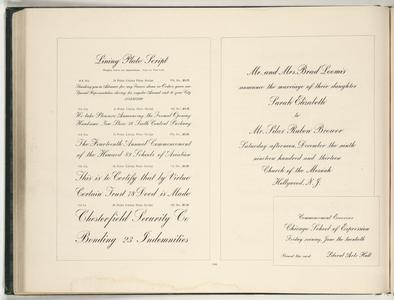 Lining Plate Script
Thanking you in Advance for any Favors shown or Orders given our
Special Representative during his regular Annual visit to your City
We take Pleasure Announcing the Formal Opening
Handsome New Store 28 South Central Parkway
The Fourteenth Annual Commencement
of the Howard 89 Schools of Aviation
This is to Certify that by Virtue
Certain Trust 78 Deed is Made
Chesterfield Security Co
Bonding 23 Indemnities
Mr. and Mrs. Brad Loomis
announce the marriage of their daughter
Sarah Elizabeth
to
Mr. Silas Ruben Brower
Saturday afternoon, December the ninth
nineteen hundred and thirteen
Church of the Messiah
Hollywood, N.J.
Commencement Exercises
Chicago School of Expression
Friday evening, June the twentieth
Present this card Liberal Arts Hall